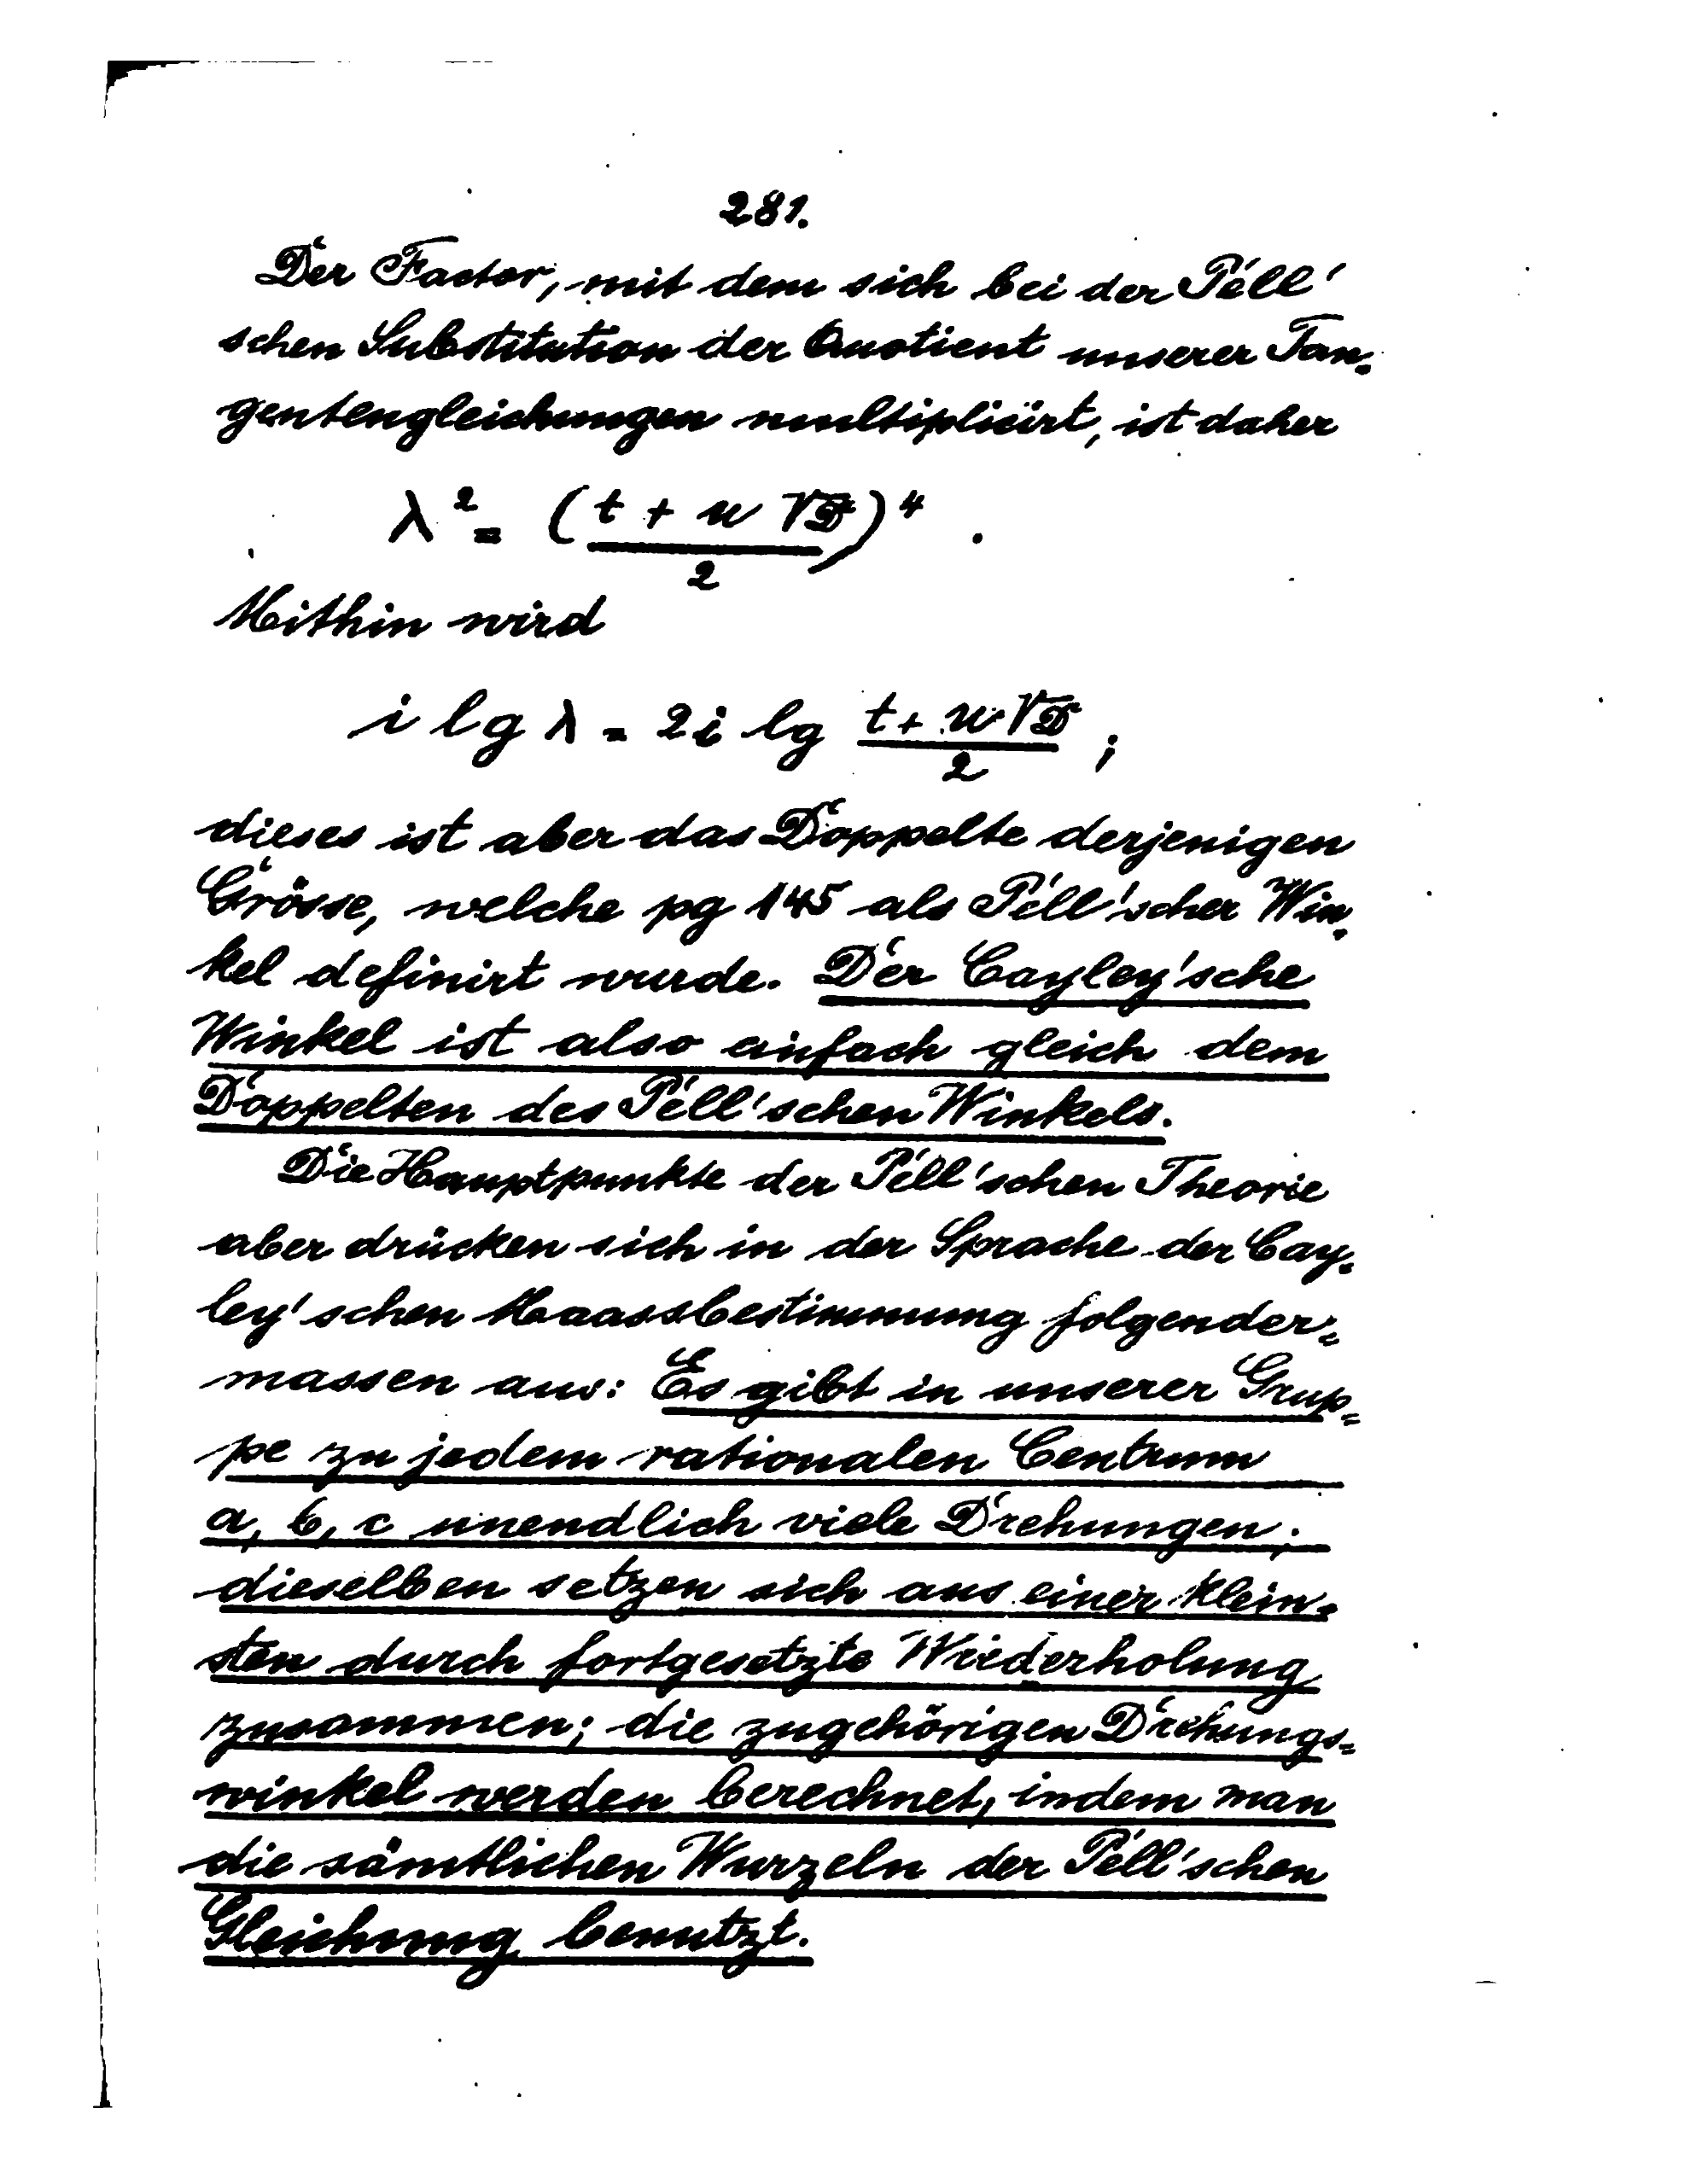 281.
Der Factor, mit dem sich bei der Pell'
schen Substitution der Quotient unserer Tan-
gentengleichungen multiplicirt, ist daher
λ² = (t + u √D / 2)⁴.
Mithin wird
i lg λ = 2i lg t + u √D / 2 ;
dieses ist aber das Doppelte derjenigen
Grösse, welche pg 145 als Pell'scher Win-
kel definirt wurde. Der Cayley'sche
Winkel ist also einfach gleich dem
Doppelten des Pell'schen Winkels.
Die Hauptpunkte der Pell'schen Theorie
aber drücken sich in der Sprache der Cay-
ley'schen Maassbestimmung folgender=
massen aus: Es gibt in unserer Grup=
pe zu jedem rationalen Centrum
a, b, c unendlich viele Drehungen;
dieselben setzen sich aus einer klein-
sten durch fortgesetzte Wiederholung
zusammen; die zugehörigen Drehungs=
winkel werden berechnet, indem man
die sämtlichen Wurzeln der Pell'schen
Gleichung benutzt.